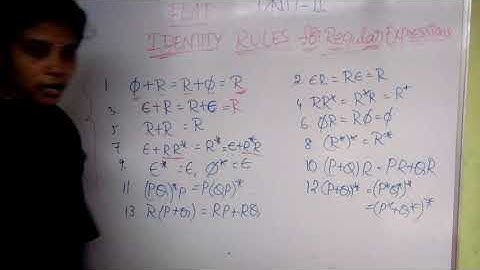 FLAT UNIT-II
IDENTITY RULES for Regular Expressions
1. ϕ+R = R+ϕ = R
2. ϵR = Rϵ = R
3. ϵ+R = R+ϵ = R
4. RR* = R*R = R+
5. R+R = R
6. ϕR = Rϕ = ϕ
7. ϵ+RR* = R* = ϵ+R*R
8 (R*)* = R*
9. ϵ* = ϵ, ϕ* = ϵ
10 (P+Q)R = PR+QR
11 (PQ)*P = P(QP)*
12 (P+Q)* = (P*Q*)*
= (P*+Q*)*
13 R(P+Q) = RP+RQ